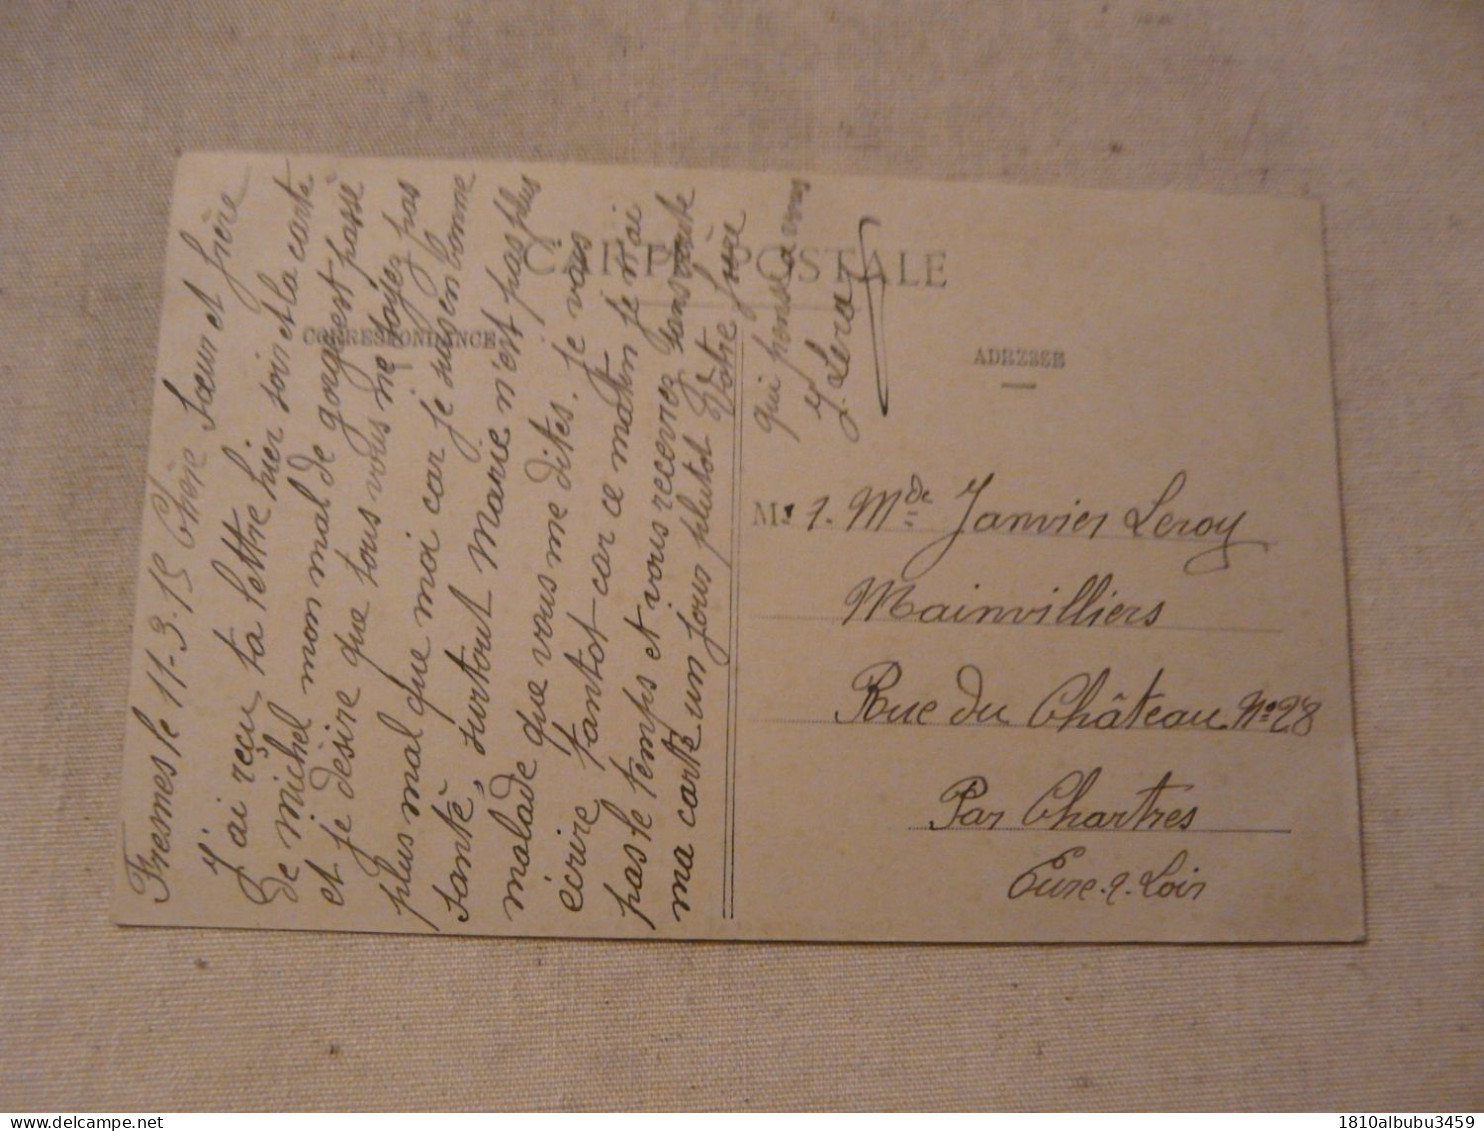 CARTE POSTALE
CORRESPONDANCE
ADRESSE
Fresnes le 11-3.15 Chère Sœur et frère
J'ai reçu ta lettre hier soir et la carte
de michel mon mal de gorge est passé
et je désire que tous vous ne soyez pas
plus mal que moi car je suis en bonne
santé, surtout Marie n'est pas plus
malade que vous me dites. Je vais
écrire tantot car ce matin je n'ai
pas le temps et vous recevrez sans doute
ma carte un jour plutot Votre frère
qui pense a vous
J. Leroy
M 1. Mde Janvier Leroy
Mainvilliers
Rue du Château No 28
Par Chartres
Eure-&-Loir
delcampe.net
1810albubu3459